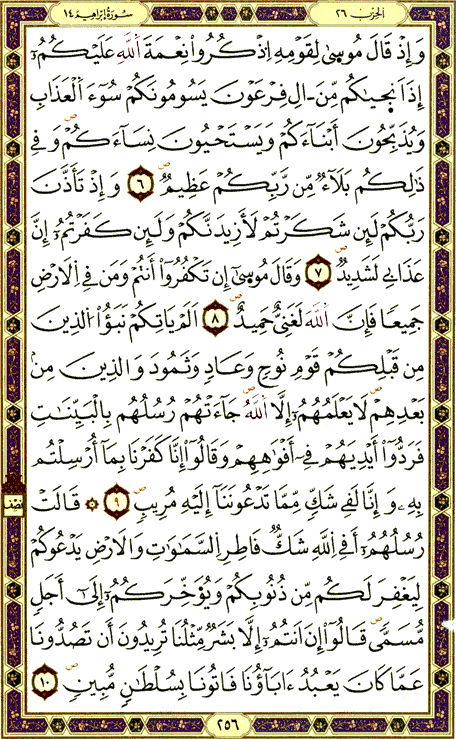 سورة ابراهيم ١٤
الحزب ٢٦
وَإِذْ قَالَ مُوسَىٰ لِقَوْمِهِ اِذْكُرُوا نِعْمَةَ اَللَّهِ عَلَيْكُمُۥٓ
إِذَ اَنجَيٰكُم مِّنَ ـ اٰلِ فِرْعَوْنَ يَسُومُونَكُمْ سُوٓءَ اَلْعَذَابِ
وَيُذَبِّحُونَ أَبْنَآءَكُمْ وَيَسْتَحْيُونَ نِسَآءَكُمْ وَفِے
ذَٰلِكُم بَلَآءٌ مِّن رَّبِّكُمْ عَظِيمٌ ٦ وَإِذْ تَأَذَّنَ
رَبُّكُمْ لَئِن شَكَرْتُمْ لَأَزِيدَنَّكُمْ وَلَئِن كَفَرْتُمُۥٓ إِنَّ
عَذَابِے لَشَدِيدٌ ٧ وَقَالَ مُوسَىٰٓ إِن تَكْفُرُوٓا أَنتُمْ وَمَن فِے اِلَارْضِ
جَمِيعاً فَإِنَّ اَللَّهَ لَغَنِيٌّ حَمِيدٌ ٨ اَلَمْ يَاتِكُمْ نَبَؤُا اُلذِينَ
مِن قَبْلِكُمْ قَوْمِ نُوحٍ وَعَادٍ وَثَمُودَ وَالذِينَ مِنۢ
بَعْدِهِمْ لَا يَعْلَمُهُمُۥٓ إِلَّا اَللَّهُ جَآءَتْهُمْ رُسُلُهُم بِالْبَيِّنَٰتِ
فَرَدُّوٓا أَيْدِيَهُمْ فِےٓ أَفْوَٰهِهِمْ وَقَالُوٓا إِنَّا كَفَرْنَا بِمَآ أُرْسِلْتُم
بِهِۦ وَإِنَّا لَفِے شَكٍّ مِّمَّا تَدْعُونَنَآ إِلَيْهِ مُرِيبٍ ٩ ۞ قَالَتْ
رُسُلُهُمُۥٓ أَفِے اِللَّهِ شَكٌّ فَاطِرِ اِلسَّمَٰوَٰتِ وَالَارْضِ يَدْعُوكُمْ
لِيَغْفِرَ لَكُم مِّن ذُنُوبِكُمْ وَيُؤَخِّرَكُمُۥٓ إِلَىٰٓ أَجَلٍ
مُّسَمّىً قَالُوٓا إِنَ اَنتُمُۥٓ إِلَّا بَشَرٌ مِّثْلُنَا تُرِيدُونَ أَن تَصُدُّونَا
عَمَّا كَانَ يَعْبُدُ ءَابَآؤُنَا فَاتُونَا بِسُلْطَٰنٍ مُّبِينٍ ١٠
نصف
٢٥٦